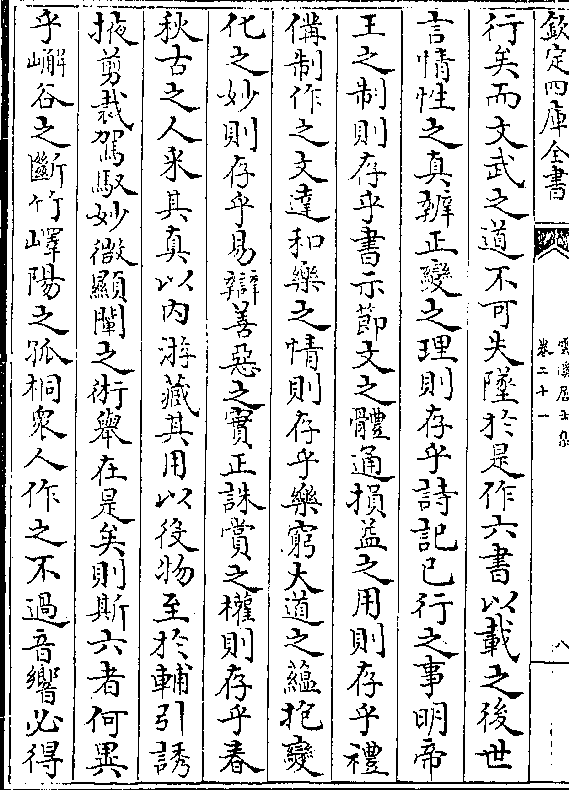 欽定四庫全書
雲溪居士集
卷二十一
八
行矣而文武之道不可失墜於是作六書以載之後世
言情性之真辨正變之理則存乎詩記已行之事明帝
王之制則存乎書示節文之體通損益之用則存乎禮
備制作之文達和樂之情則存乎樂窮大道之蘊抱變
化之妙則存乎易辯善惡之實正誅賞之權則存乎春
秋古之人釆其真以内游藏其用以役物至於輔引誘
掖剪裁駕馭妙微顯闡之術舉在是矣則斯六者何異
乎嶰谷之斷竹嶧陽之孤桐衆人作之不過音響必得